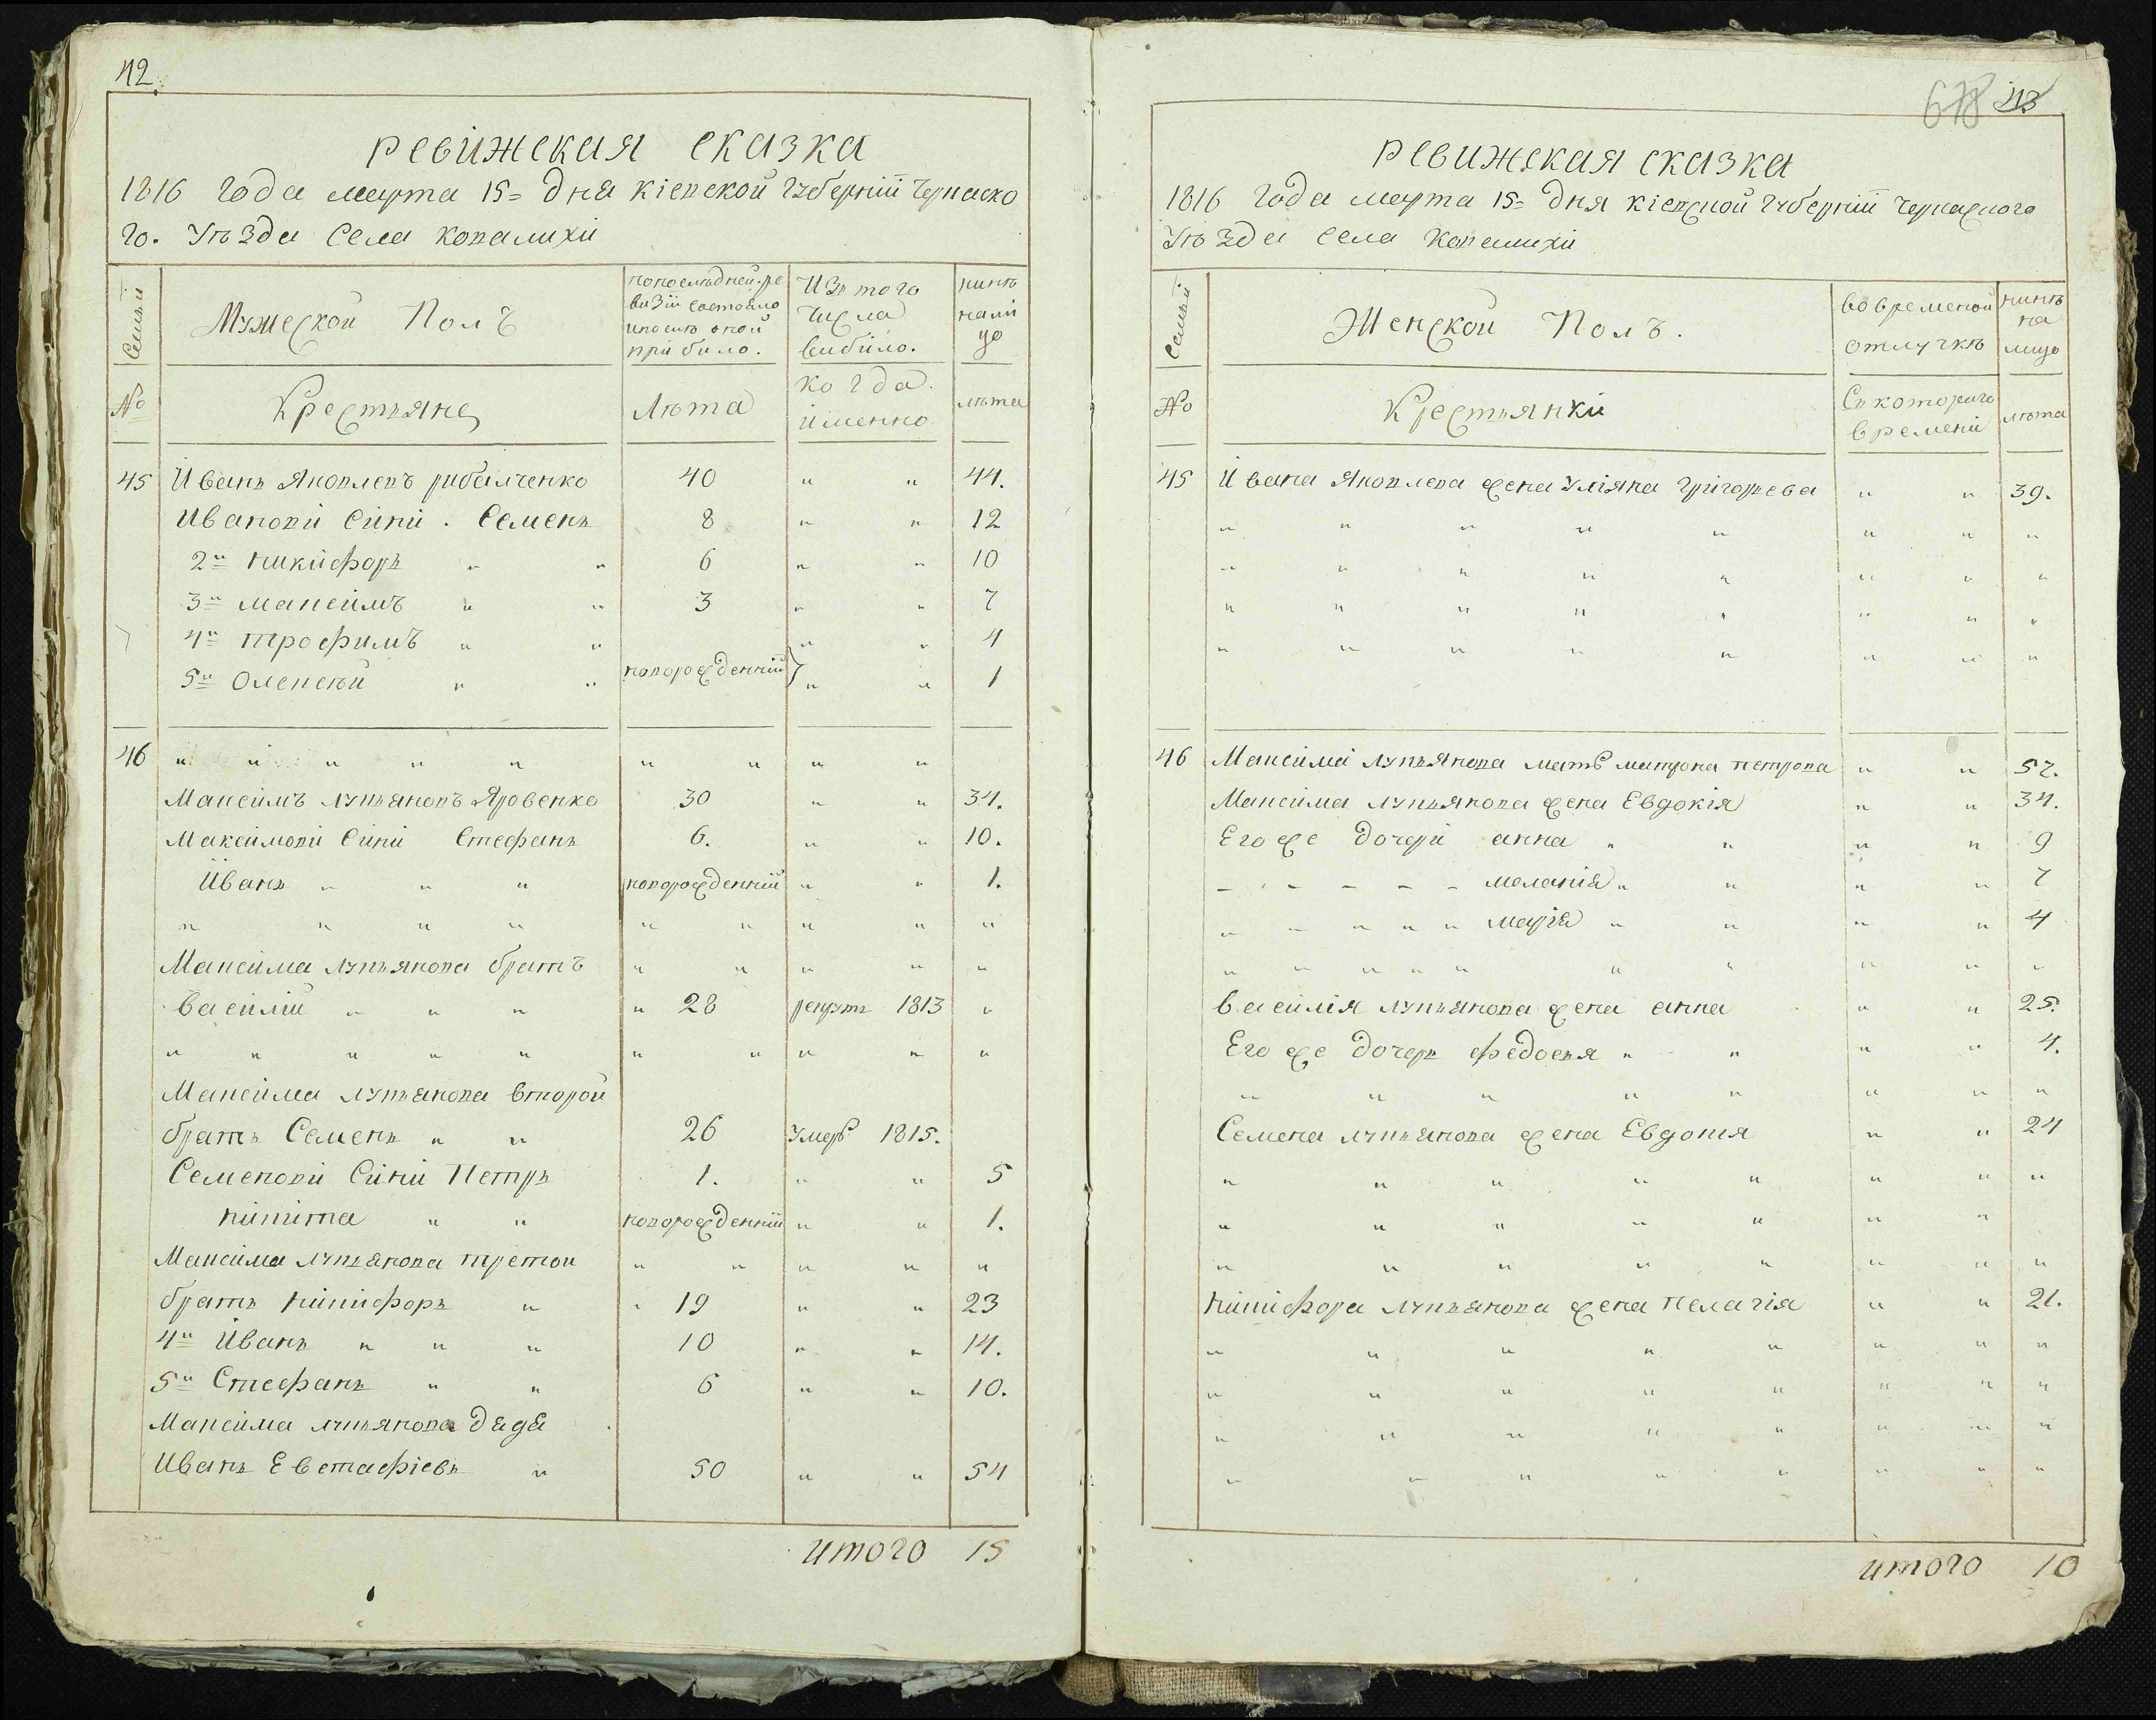 42.
ревижская сказка
1816 года марта 15= дня кіевской губерніи черкаско
го. уѣзда села ковалихи
Семьи
Мужеской Полъ
попослѣдней ре
визіи состояло
ипослѣ оной
прибило.
Изъ того
числа
вибило.
нинѣ
нали
цо
№
Крестьяне
Лѣта
когда
именно
лѣта
45 Иванъ Яковлевъ рибалченко 40 " " 44.
Ивановы сины . Семенъ 8 " " 12
2й никифоръ " " 6 " " 10
3й максимъ " " 3 " " 7
4й трофимъ " " " " 4
5й Олексѣй " " новорожденній " " 1
46 " " " " " " " " "
Максимъ лукьяновъ Яровенко 30 " " 34.
Максимовы сины Стефанъ 6. " " 10.
Иванъ " " " новорожденній " " 1.
" " " " " " " " "
Максима лукьянова братъ " " " " "
василій " " " " 28 рекрутъ 1813 "
" " " " " " " " " "
Максима лукьянова второй
братъ Семенъ " " 26 умеръ 1815.
Семеновы сины Петръ 1. " " 5
никита " " новорожденній " " 1.
Максима лукьянова третои " " " " "
братъ никифоръ " " 19 " " 23
4й Иванъ " " " 10 " " 14.
5й Стефанъ " " 6 " " 10.
Максима лукьянова дядя
Иванъ Евстафіевъ " 50 " " 54
итого 15
678 43
ревижская сказка
1816 года марта 15= дня кіевской губерніи черкаского
уѣзда села ковалихи
Семьи
Женской Полъ.
во временой
отлучкѣ
нинѣ
на
лицо
№
Крестьянки
Съ которого
времени
лѣта
45 Ивана Яковлева жена уліяна григорьева " " 39.
" " " " " " " "
" " " " " " " "
" " " " " " " "
" " " " " " " "
46 Максима лукьянова мать матрона петрова " " 57.
Максима лукьянова жена Евдокія " " 34.
Его же дочери анна " " " " 9
- - - - - меланія " " " " 7
" " " " " марія " " " " 4
" " " " " " " " " "
василія лукьянова жена анна " " 25.
Его же дочеръ федосия " " " " 4.
" " " " " " " "
Семена лукьянова жена Евдокия " " 24
" " " " " " " "
" " " " " " "
" " " " " " " "
никифора лукьянова жена пелагія " " 21.
" " " " " " " "
" " " " " " " "
" " " " " " " "
" " " " " " " "
итого 10